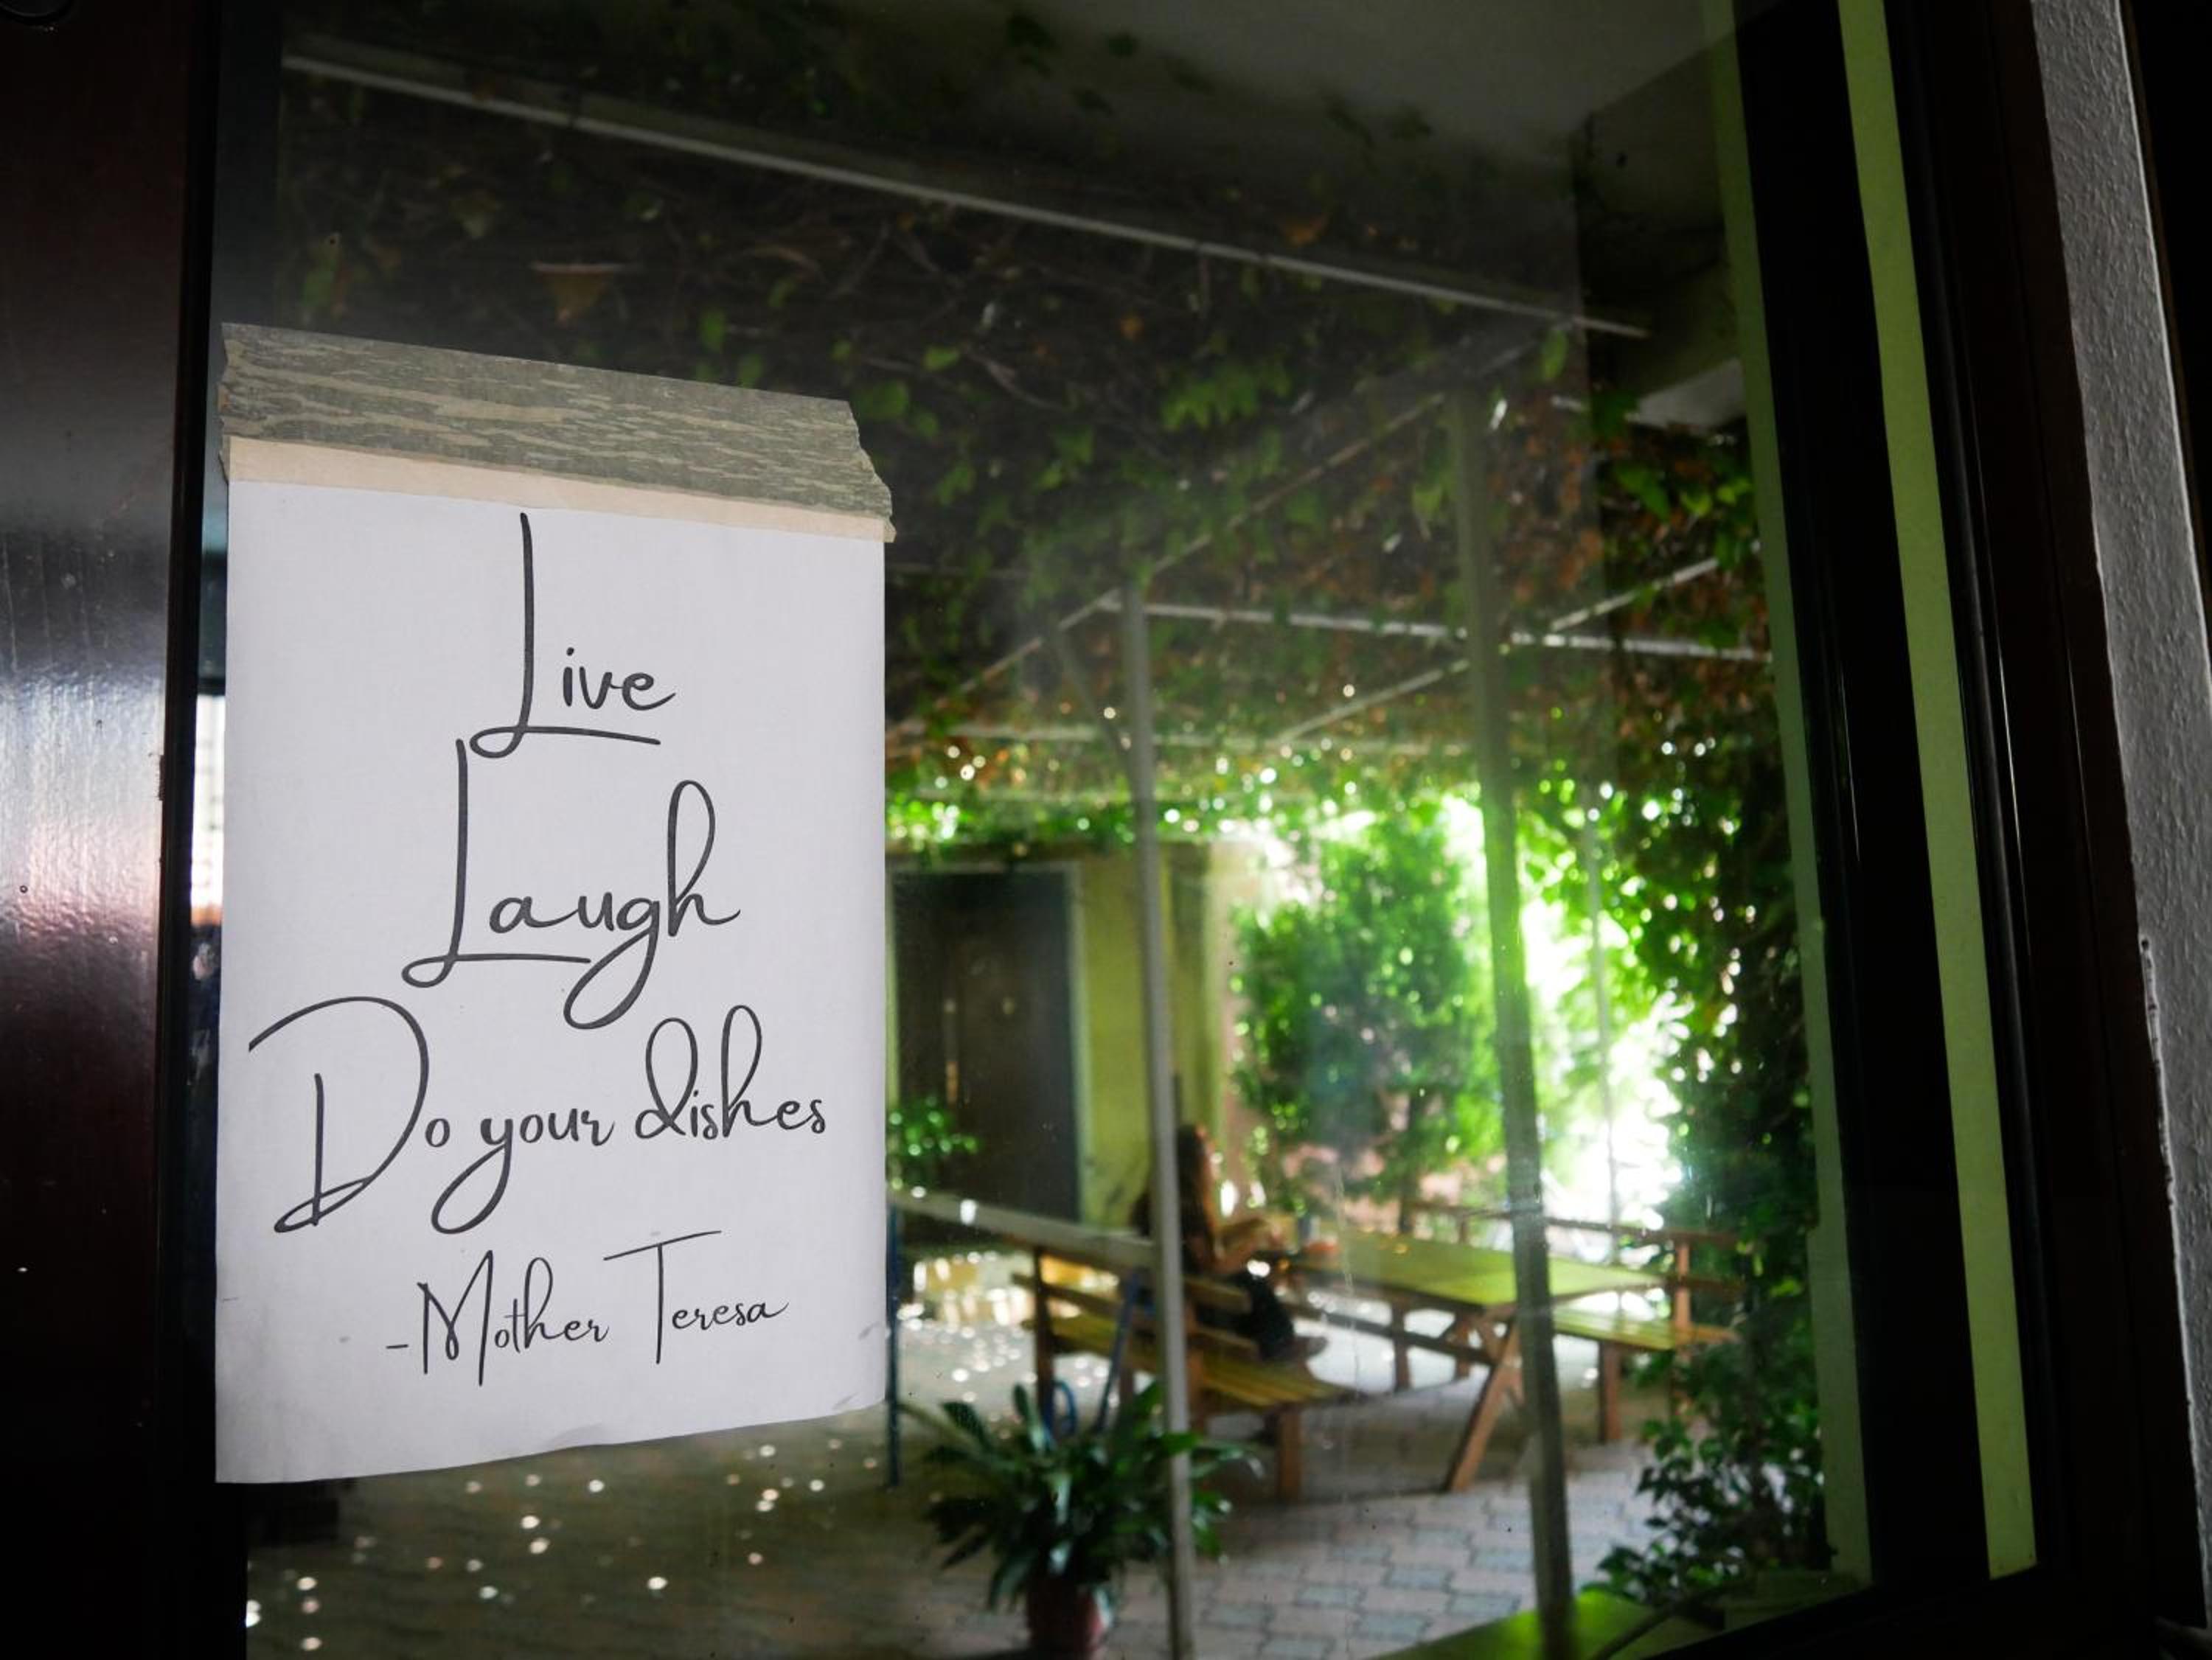 Live
Laugh
Do your dishes
-Mother Teresa